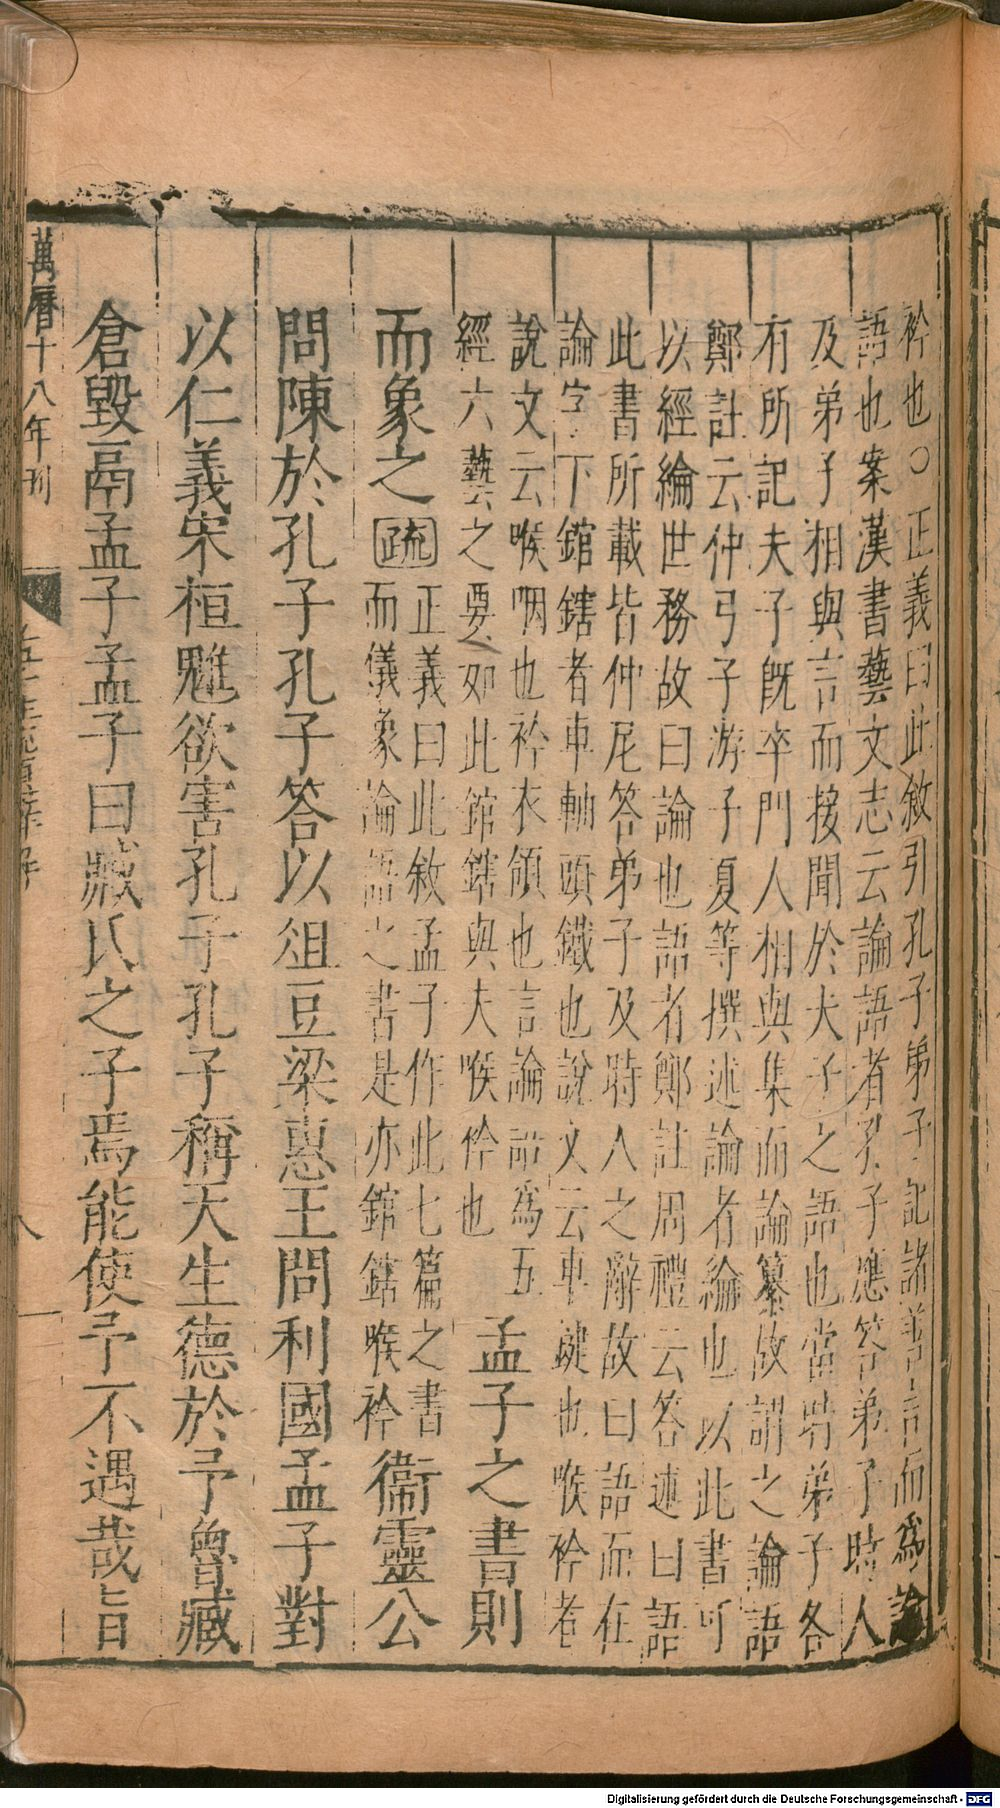 衿也○正義曰此敘引孔子弟子記諸善言而爲論
語也案漢書藝文志云論語者孔子應答弟子時人
及弟子相與言而接聞於夫子之語也當時弟子各
有所記夫子既卒門人相與集而論纂故謂之論語
鄭註云仲弓子游子夏等撰述論者綸也以此書可
以經綸世務故曰論也語者鄭註周禮云答述曰語
此書所載皆仲尼答弟子及時人之辭故曰語而在
論字下錧鎋者車軸頭鐵也說文云車鍵也喉衿者
說文云喉咽也衿衣領也言論語爲五
經六藝之要如此錧鎋與夫喉衿也
孟子之書則
而象之疏
正義曰此敘孟子作此七篇之書
而儀象論語之書是亦錧鎋喉衿
衞靈公
問陳於孔子孔子答以俎豆梁惠王問利國孟子對
以仁義宋桓魋欲害孔子孔子稱天生德於予魯臧
倉毀鬲孟子孟子曰臧氏之子焉能使予不遇哉旨
萬曆十八年刊
八
Digitalisierung gefördert durch die Deutsche Forschungsgemeinschaft - DFG